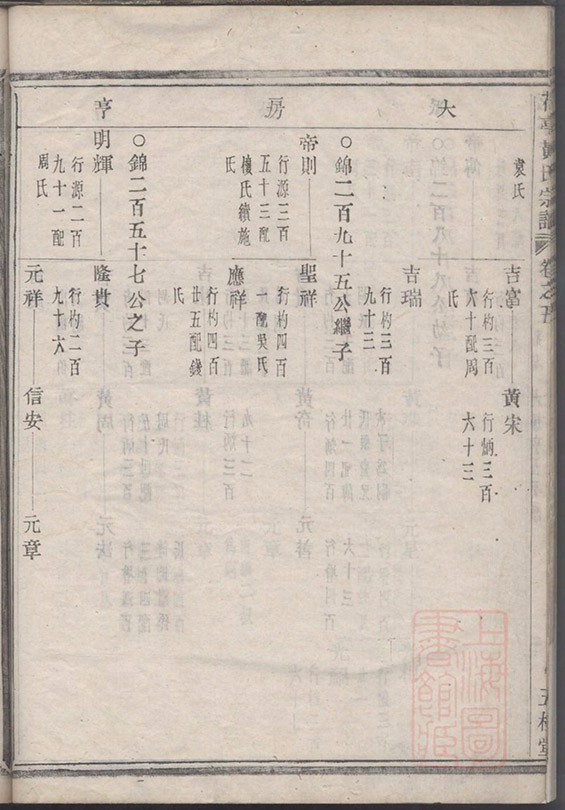 黃氏宗譜 卷之五
大
房
亨
袁氏
吉富
行杓三百
六十配周
氏
黃宋
行炳三百
六十三
吉瑞
行杓三百
九十三
○錦二百九十五公繼子
帝則
行源三百
五十三配
氏續施
氏
聖祥
行杓四百
八配吳氏
應祥
行杓四百
廿五配錢
氏
○錦二百五十七公之子
明輝
行源二百
九十一配
周氏
隆貴
行杓二百
九十六
元祥
信安
元章
上海圖書館藏